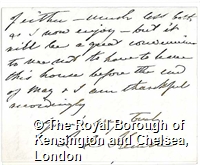 of either - much less both,
as I now enjoy - but it
will be a great convenience
to me not to have to leave
this house before the end
of May & I am thankful
accordingly
Truly
© The Royal Borough of
Kensington and Chelsea,
London